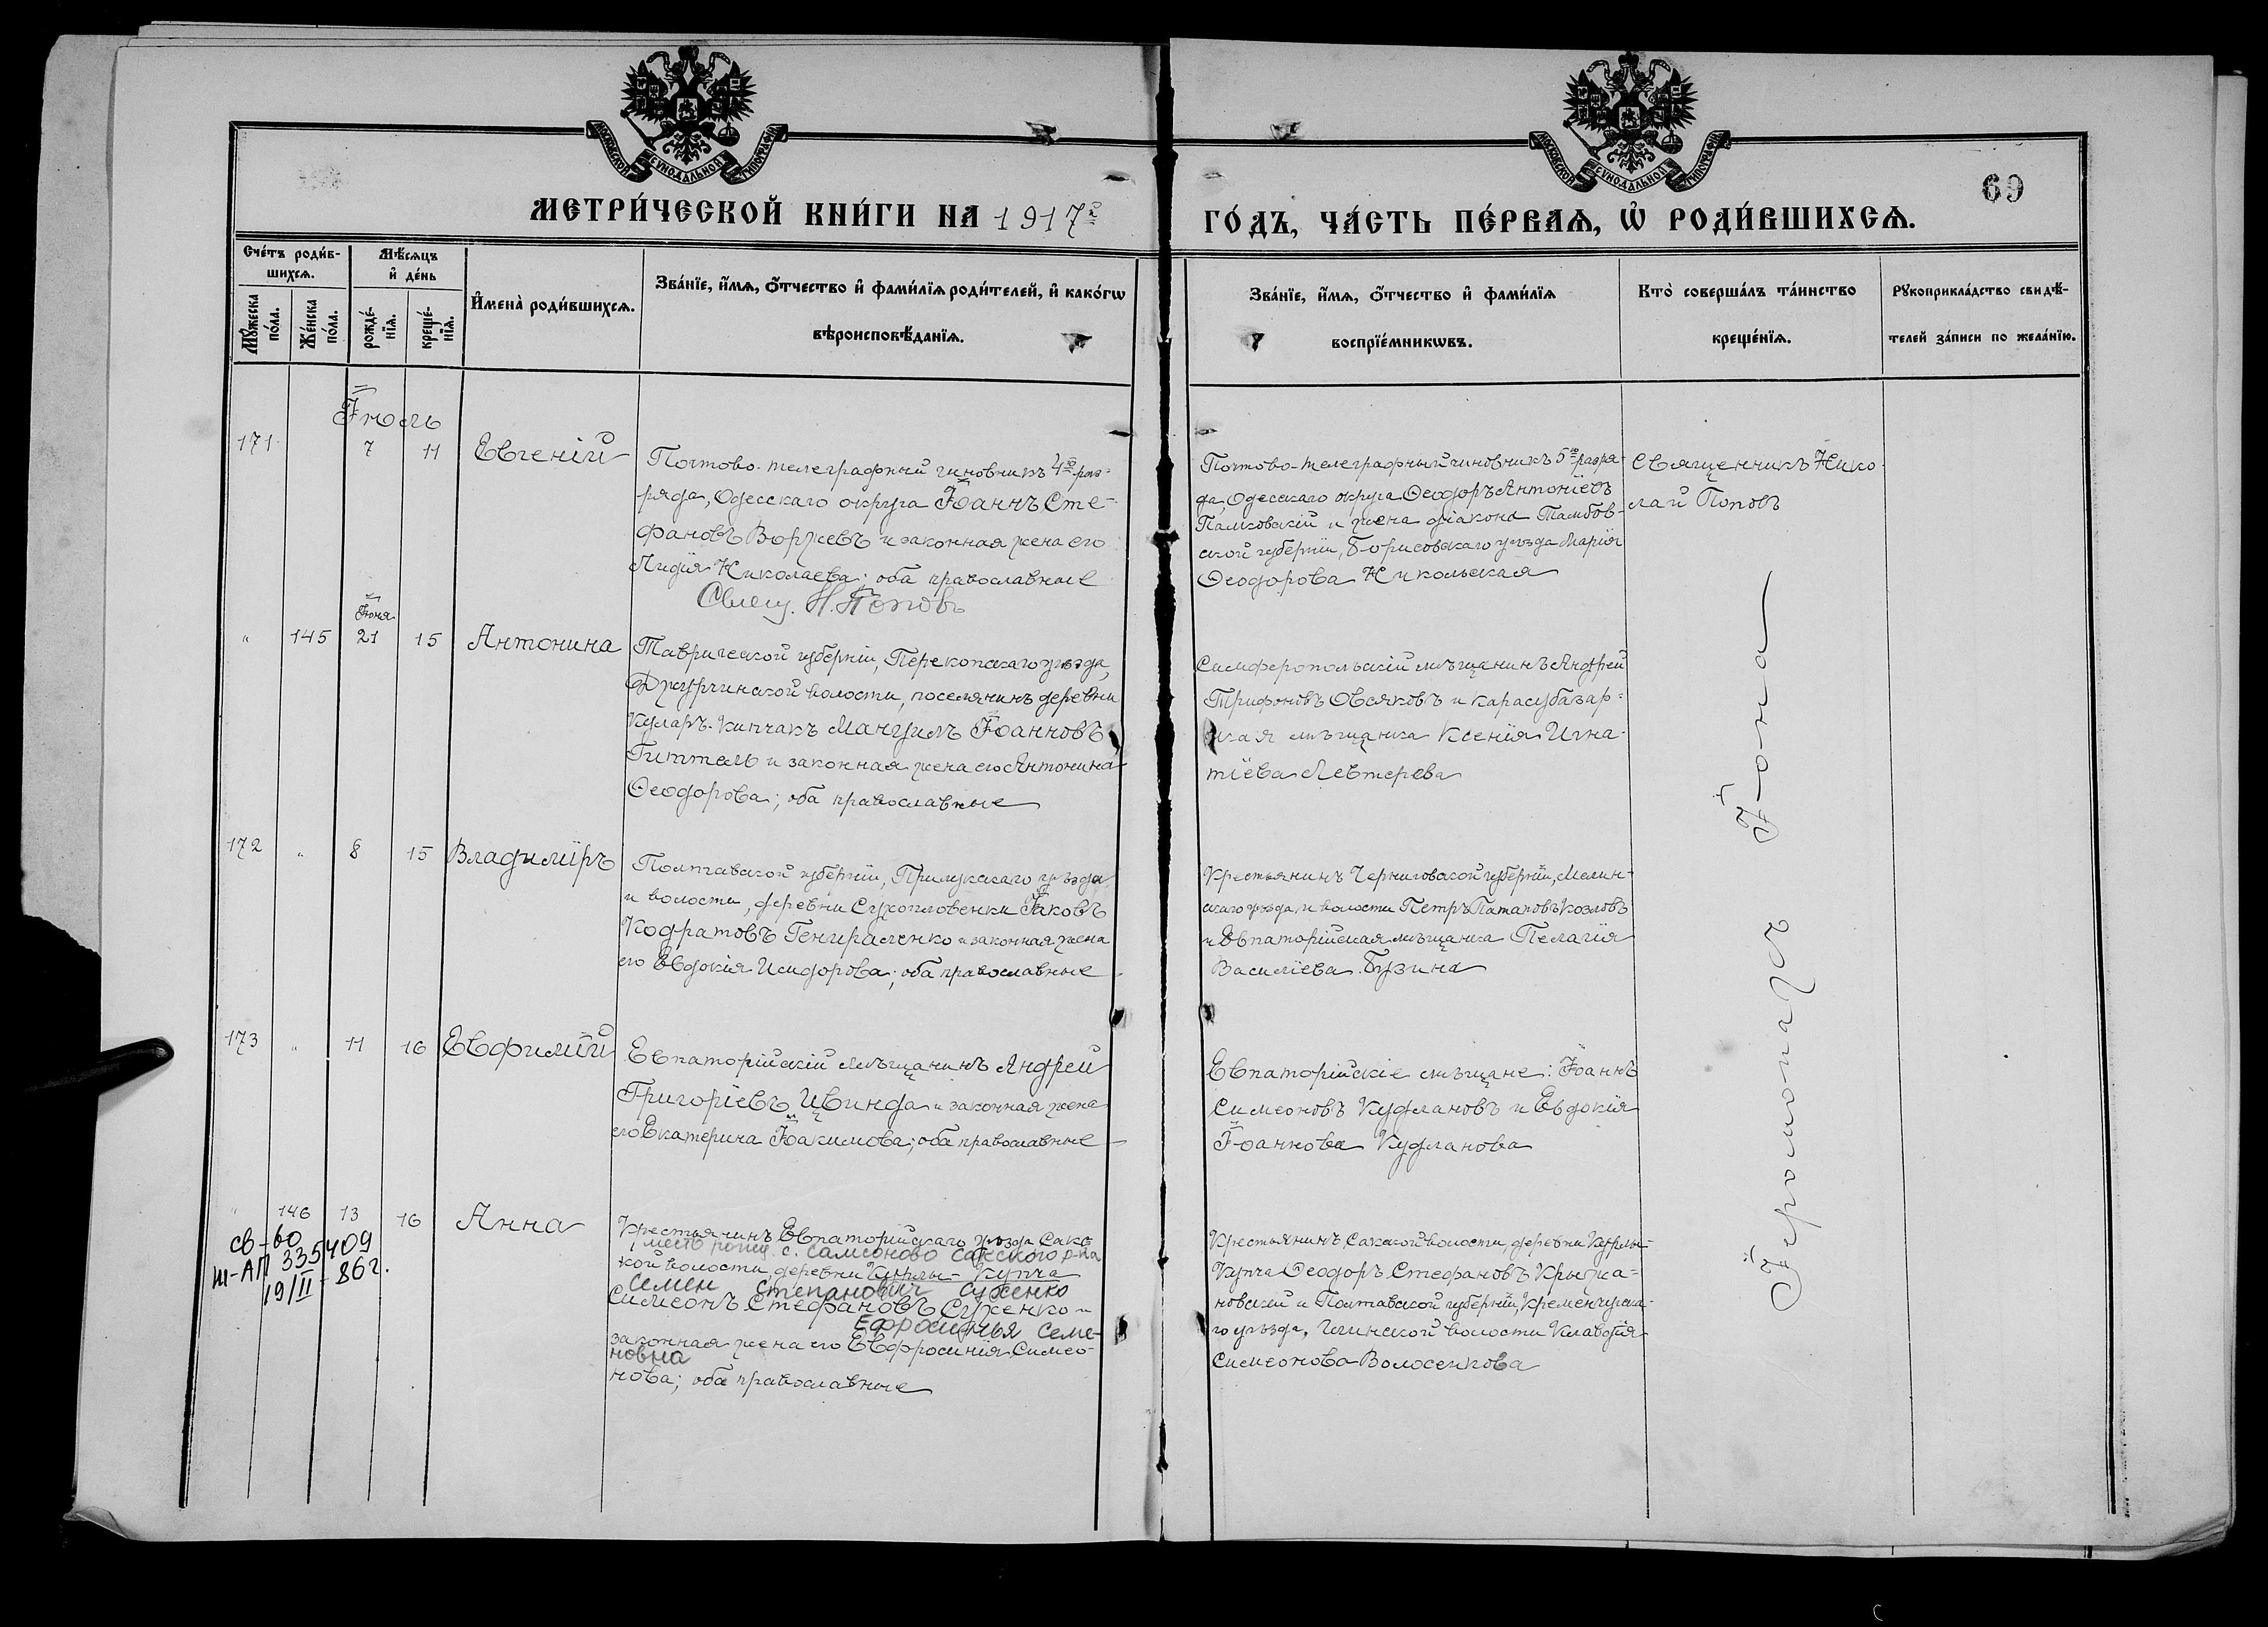 МОСКОВСКОЙ СѴНОДАЛЬНОЙ ТИПОГРАФІИ
МОСКОВСКОЙ СѴНОДАЛЬНОЙ ТИПОГРАФІИ
69
МЕТРИ́ЧЕСКОЙ КНИ́ГИ НА 1917й ГО́ДЪ, ЧА́СТЬ ПЕ́РВАѦ, Ѡ҆ РОДИ́ВШИХСѦ.
Сче́тъ роди́в-
шихсѧ.
Мꙋ́жеска по́ла.
Же́нска по́ла.
Мѣ́сѧцъ
и҆ де́нь
рожде́-
нїѧ.
креще́-
нїѧ.
И҆мена̀ роди́вшихсѧ.
Зва́нїе, и҆́мѧ, ѻ҆́тчество и҆ фами́лїѧ роди́телей, и҆ како́гѡ
вѣроисповѣ́данїѧ.
Зва́нїе, и҆́мѧ, ѻ҆́тчество и҆ фами́лїѧ
воспрїе́мникѡвъ.
Кто̀ соверша́лъ та́инство
креще́нїѧ.
Рꙋкоприкла́дство свидѣ́-
телей за́писи по жела́нїю.
Іюль
171
7
11
Евгеній
Почтово-телеграфный чиновникъ 4го раз-
ряда, Одесскаго округа Іоаннъ Сте-
фановъ Воржевъ и законная жена его
Лидія Николаева; оба православные
Свящ. Н. Поповъ
Почтово-телеграфный чиновникъ 5го разря-
да, Одесскаго округа Ѳеодоръ Антоніевъ
Палковскій и жена діакона Тамбов-
ской губерніи, Борисовскаго уѣзда Марія
Ѳеодорова Никольская
Священникъ Нико-
лай Поповъ
Іюня
"
145
21
15
Антонина
Таврической губерніи, Перекопскаго уѣзда,
Джурчинской волости, поселянинъ деревни
Куларъ-Кипчакъ Іоанновъ
и законная жена его Антонина
Ѳеодорова; оба православные
Симферопольскій мѣщанинъ Андрей
Трифоновъ Овсяковъ и карасубазар-
ская мѣщанка Ксенія Игна-
тіева Левтерова
172
"
8
15
Владиміръ
Полтавской губерніи, Прилукскаго уѣзда
и волости, деревни Сухополовенки Іаковъ
Кодратовъ Генираленко и законная жена
его Евдокія Исидорова; оба православные
Крестьянинъ Черниговской губерніи, Мглин-
скаго уѣзда и волости Петръ Козловъ
и Евпаторійская мѣщанка Пелагія
Василіева Бузина
173
"
11
16
Евфимій
Евпаторійскій мѣщанинъ Андрей
Григоріевъ Цвинда и законная жена
его Екатерина Іоакимова; оба православные
Евпаторійскіе мѣщане: Іоаннъ
Симеоновъ Куфлановъ и Евдокія
Іоаннова Куфланова
"
146
13
16
Анна
св-во
III-АП 335409
19/II-86г.
Крестьянинъ Евпаторійскаго уѣзда Сакс-
место рожд. с. Самсоново Сакского р-на
кой волости, деревни Купча
Семен Степанович Суженко
Симеонъ Стефановъ Суженко и
Ефросинья Семе-
законная жена его Евфросинія Симео-
новна
нова; оба православные
Крестьянинъ Сакской волости, деревни
Купча Ѳеодоръ Стефановъ Крыжа-
новскій и Полтавской губерніи, Кременчугска-
го уѣзда, волости Клавдія
Симеонова Волосенкова
Іеромонахъ Іона